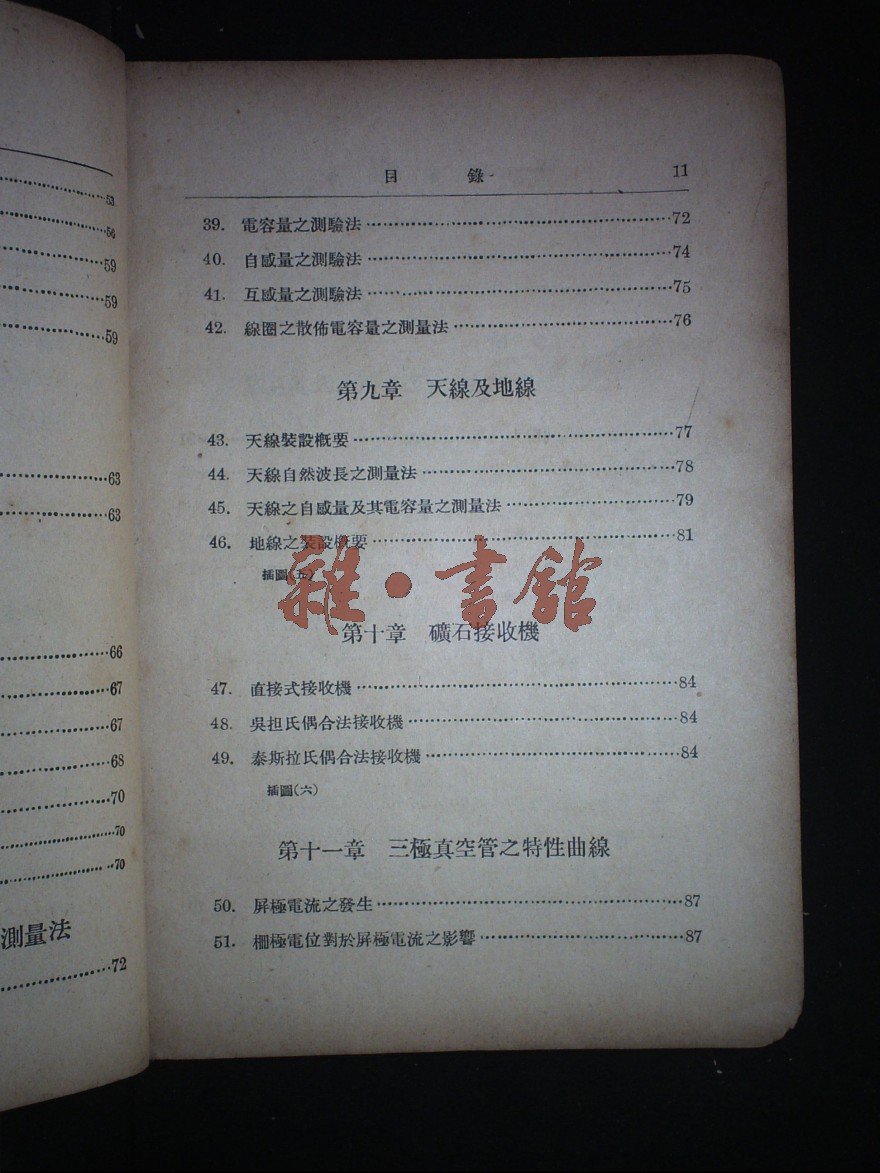 53
56
59
59
59
63
63
66
67
67
68
70
70
70
測量法
72
目 錄 11
39. 電容量之測驗法 72
40. 自感量之測驗法 74
41. 互感量之測驗法 75
42. 線圈之散佈電容量之測量法 76
第九章 天線及地線
43. 天線裝設概要 77
44. 天線自然波長之測量法 78
45. 天線之自感量及其電容量之測量法 79
46. 地線之裝設概要 81
插圖(五)
雜·書館
第十章 礦石接收機
47. 直接式接收機 84
48. 吳担氏偶合法接收機 84
49. 泰斯拉氏偶合法接收機 84
插圖(六)
第十一章 三極真空管之特性曲線
50. 屏極電流之發生 87
51. 柵極電位對於屏極電流之影響 87